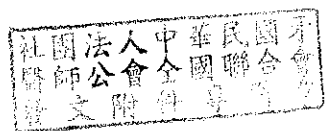 社團法人中華民國牙
醫師公會全國聯合會
文附件專